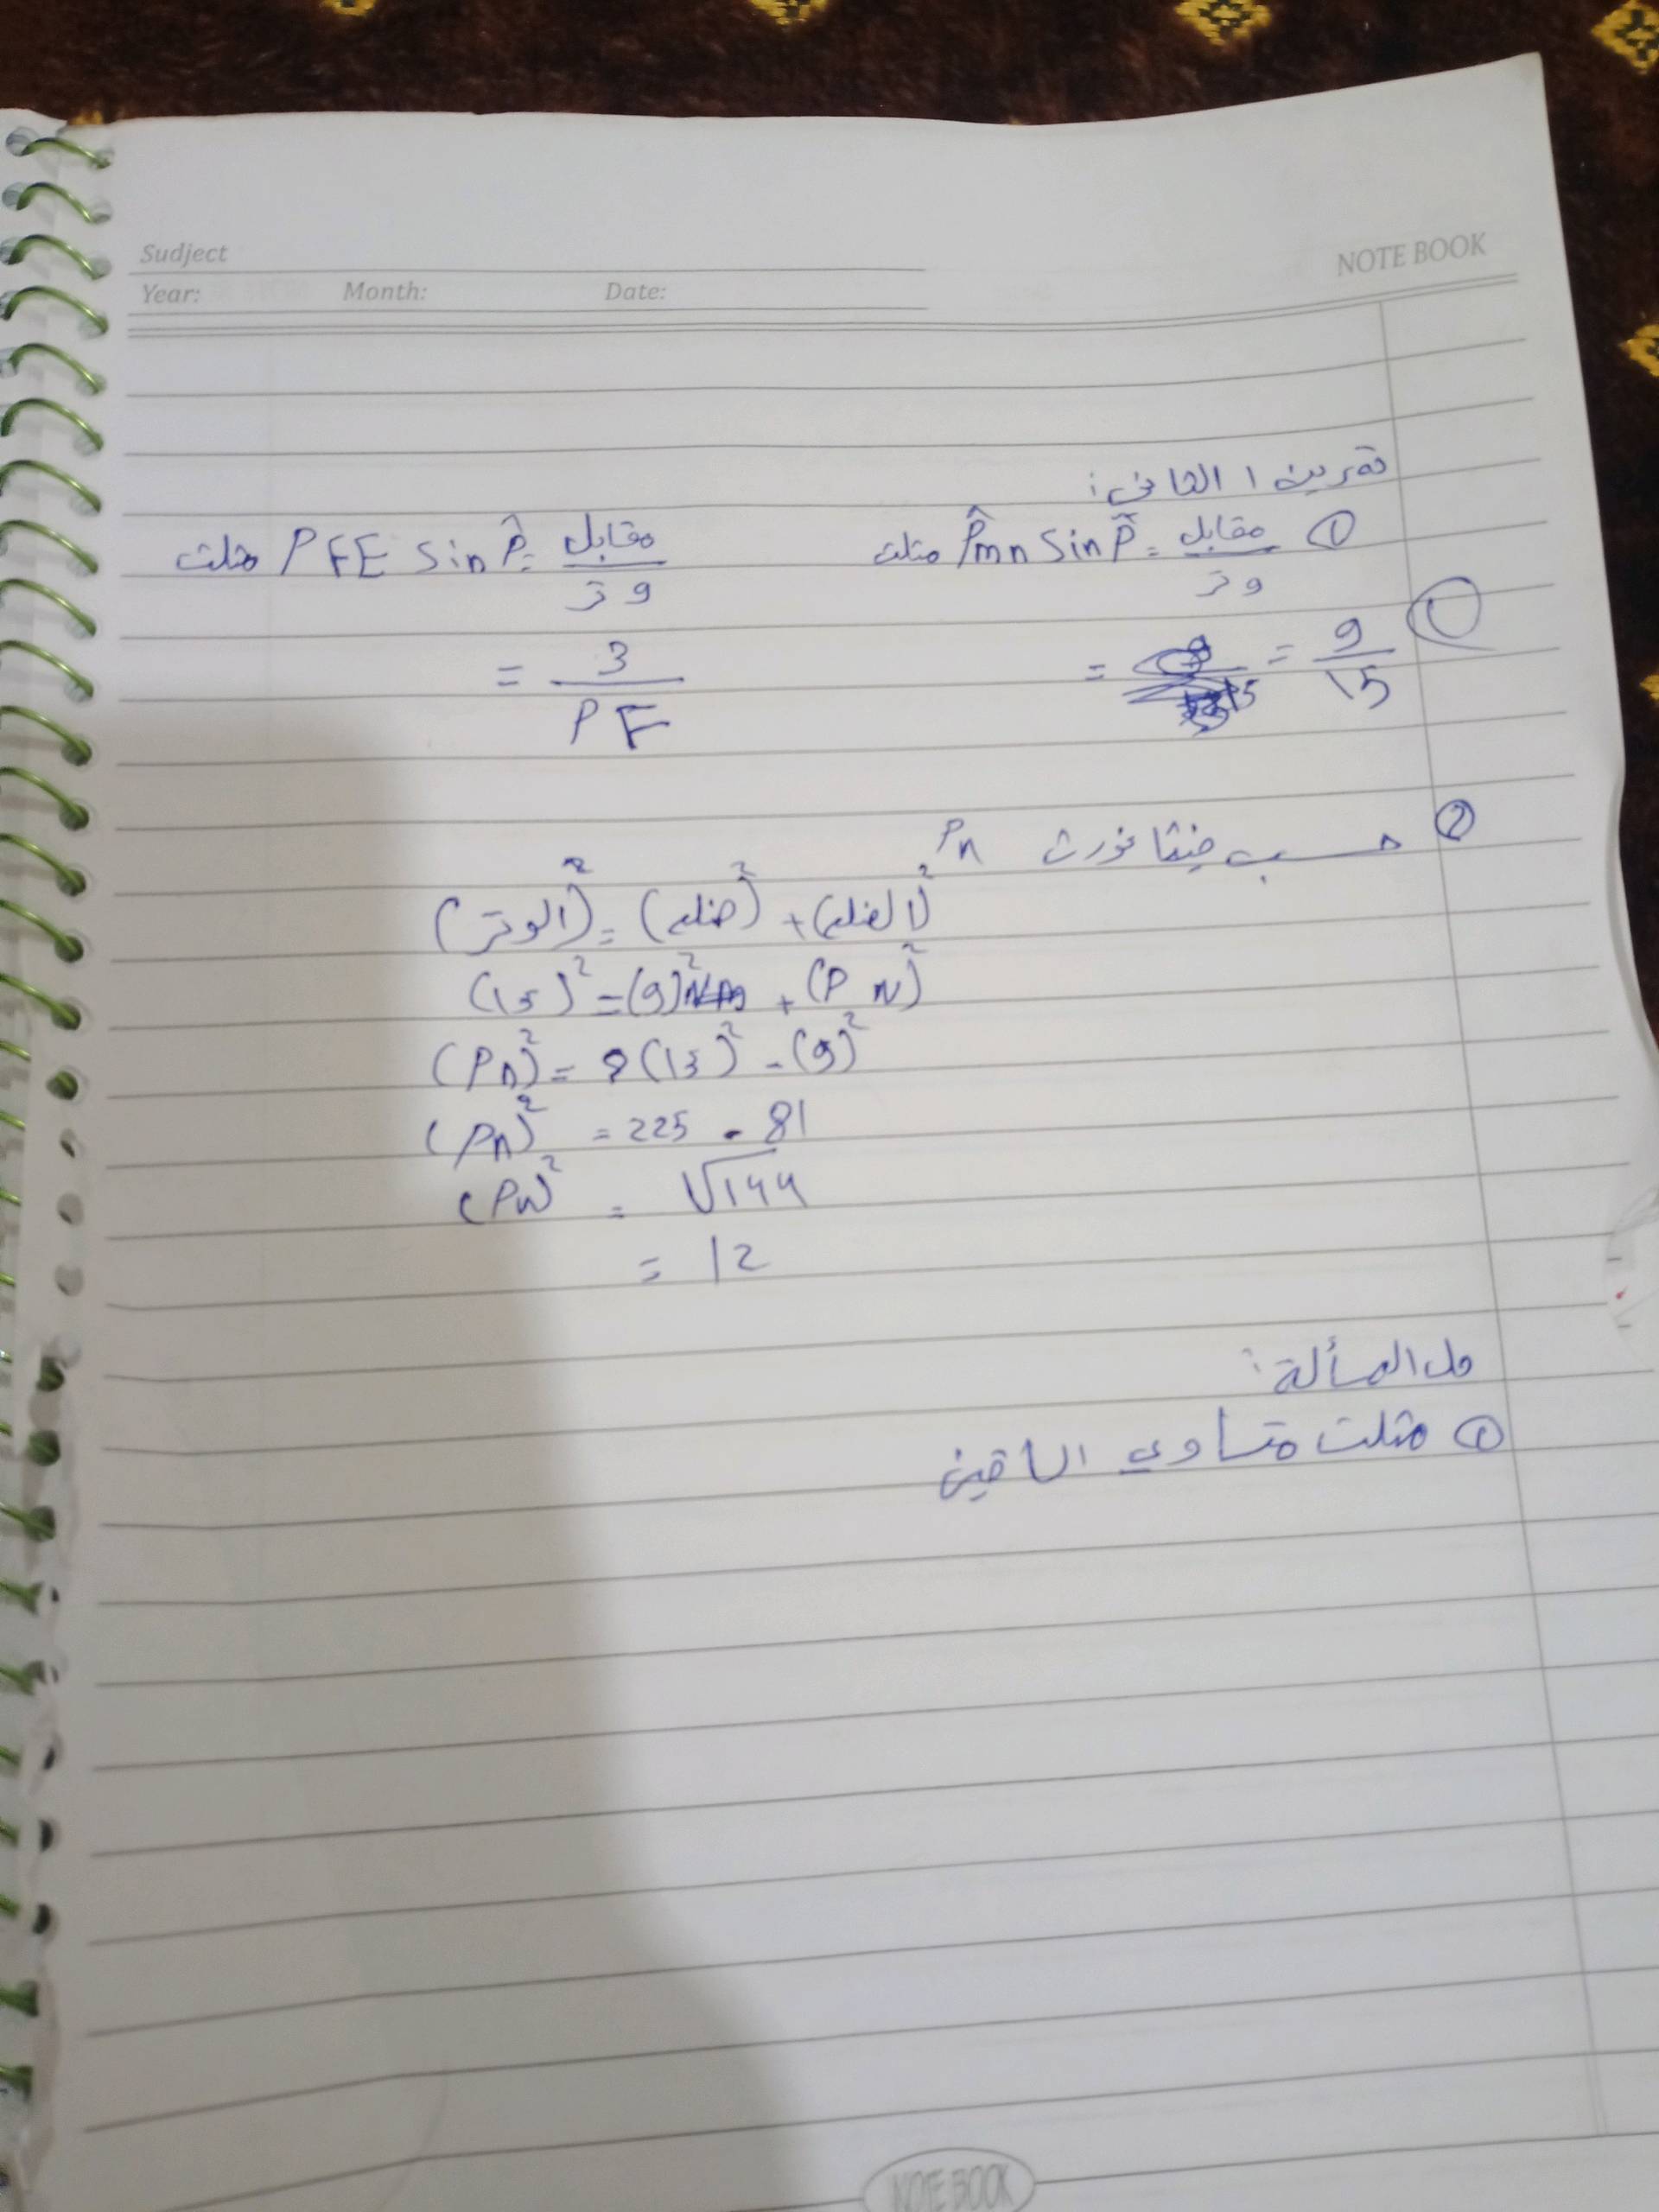 Sudject
NOTE BOOK
Year: Month: Date:
تمرين ١ الثاني:
① مثلث P̂mn Sin P̂ = مقابل / وتر
= 9/15
مثلث PFE Sin P̂ = مقابل / وتر
= 3/PF
② حسب فيثاغورث Pn
(الوتر)² = (ضلع)² + (الضلع)²
(15)² = (9)² + (PN)²
(Pn)² = (15)² - (9)²
(Pn)² = 225 - 81
(PN)² = √144
= 12
حل المسألة:
① مثلث متساوي الساقين
NOTE BOOK